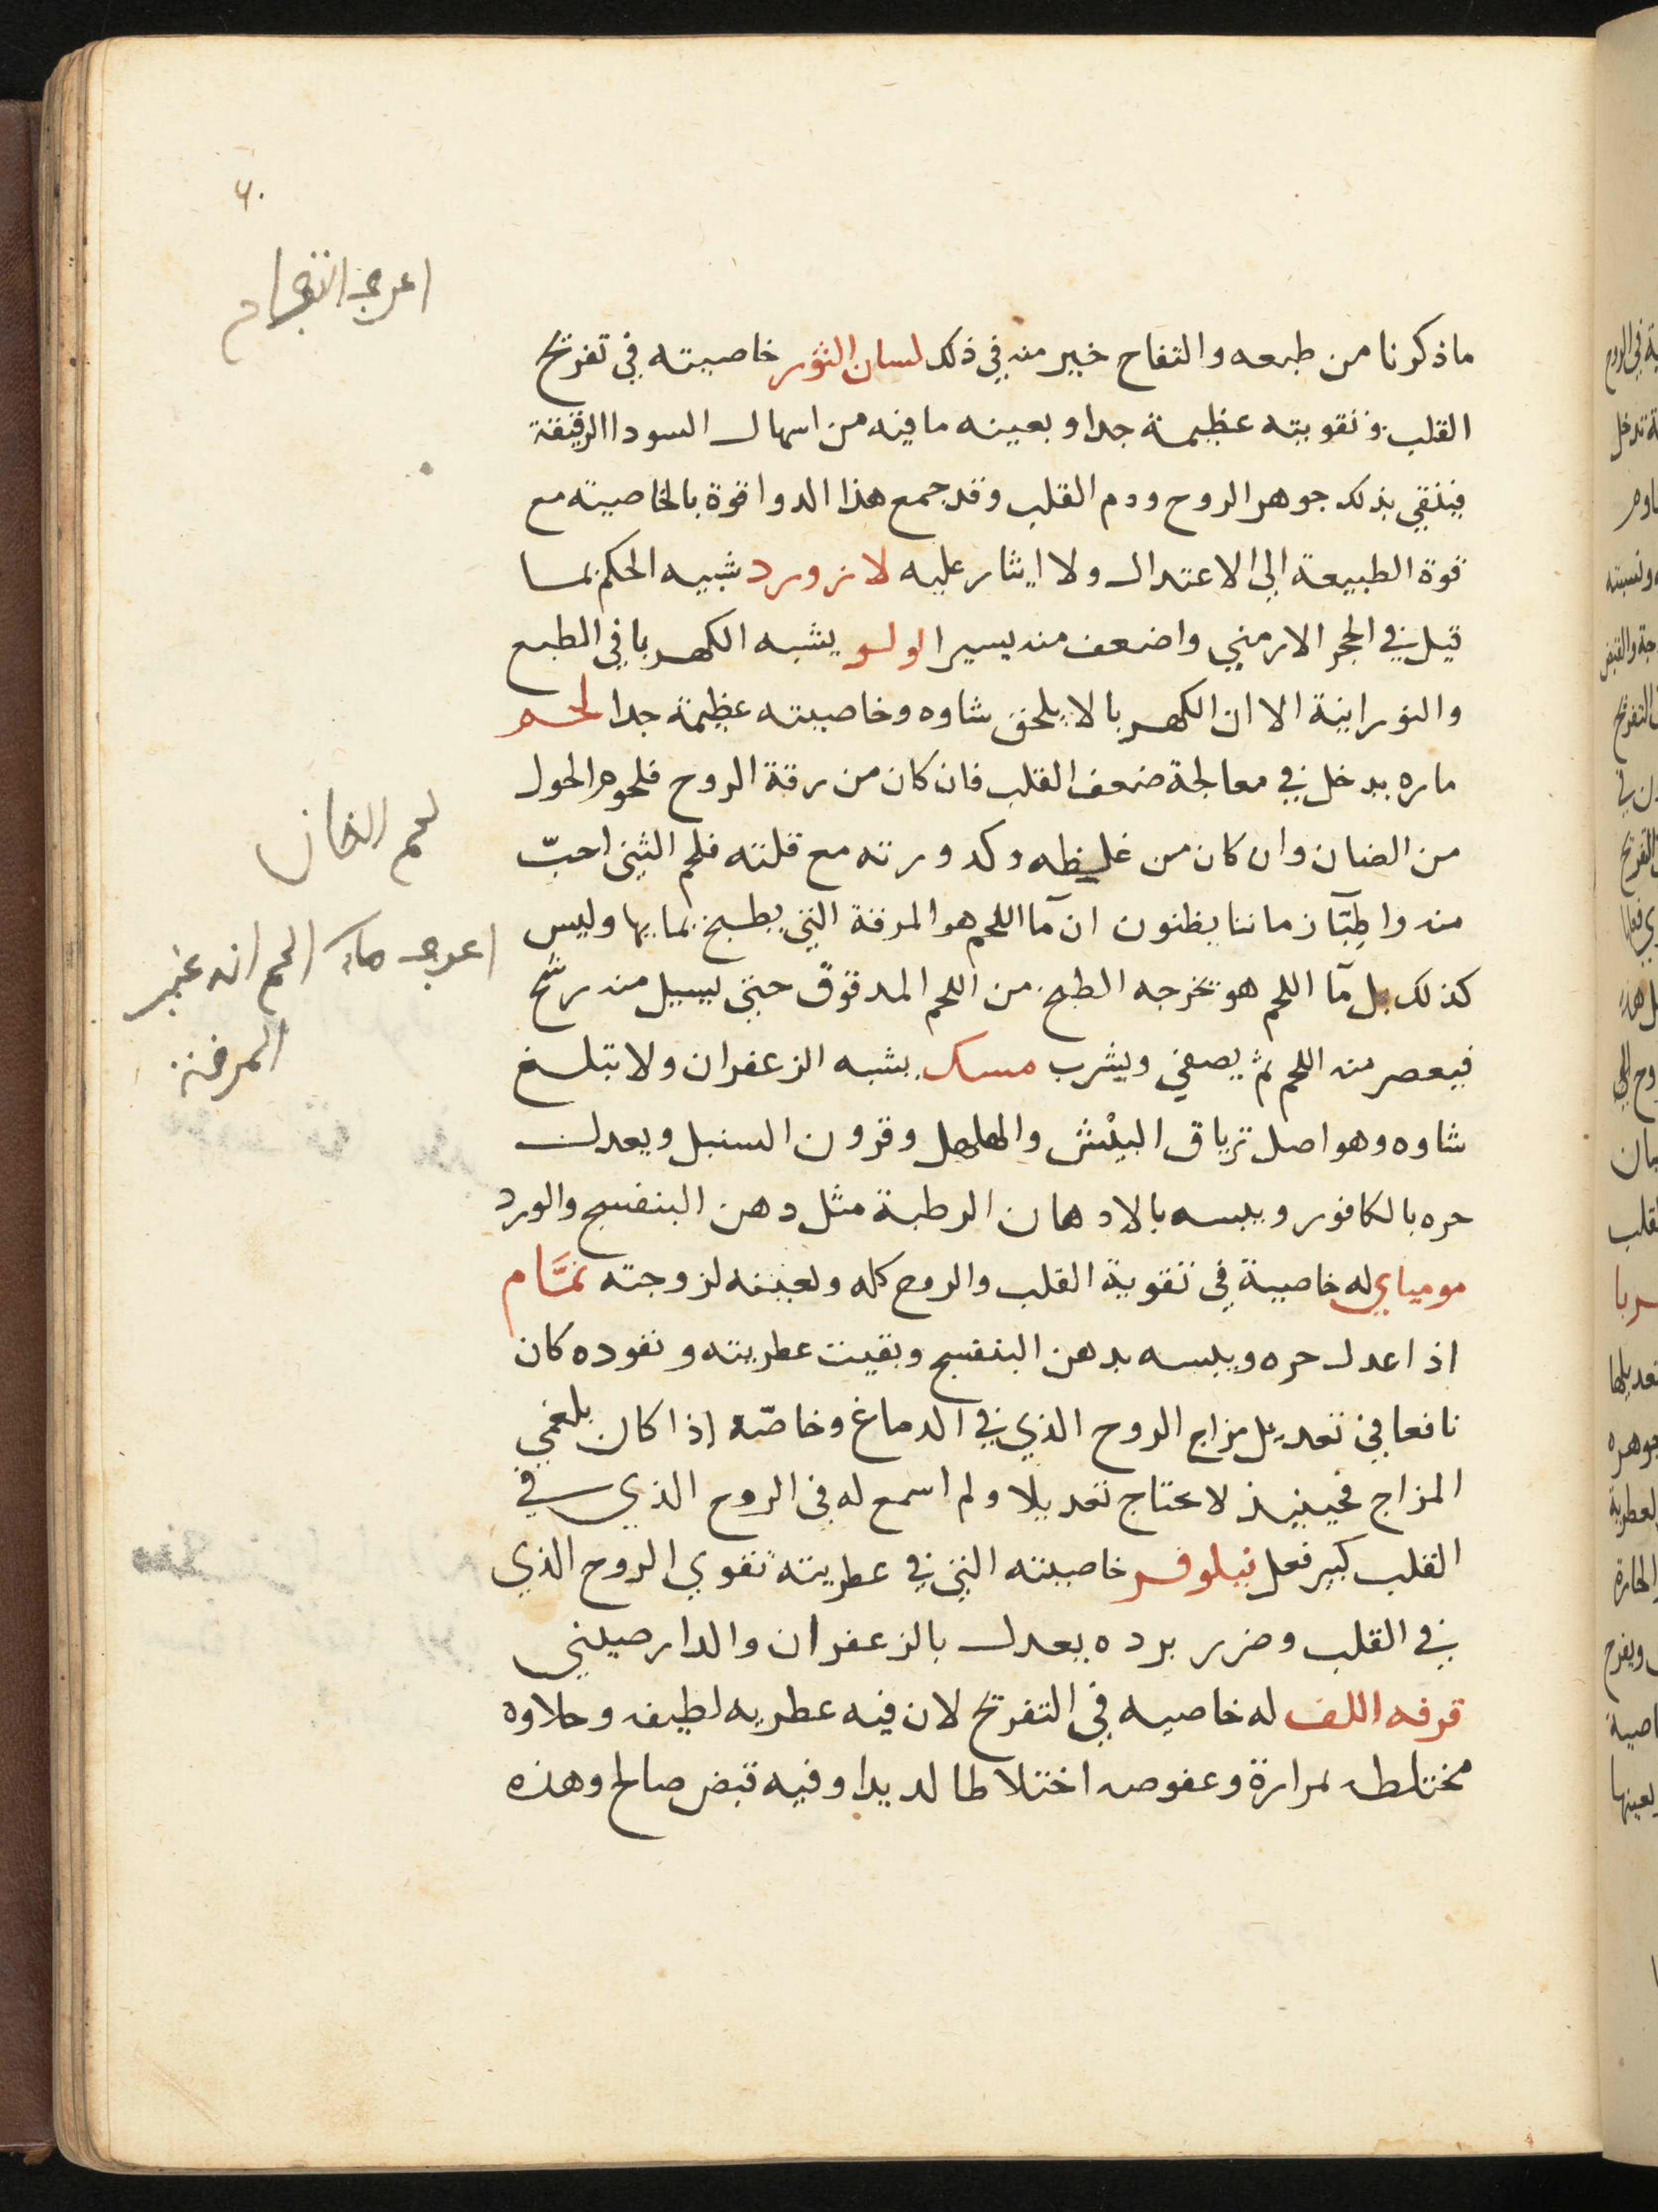 ما ذكرنا من طبعه والتفاح خير منه في ذلك لسان الثور خاصيته في تفريح
القلب وتقويته عظيمة جدا وبعينه ما فيه من اسهال السودا الرقيقة
فينقي بذلك جوهر الروح ودم القلب وقد جمع هذا الدوا قوة بالخاصيته مع
قوة الطبيعة الي الاعتدال ولا ايثار عليه لازورد شبيه الحكم بما
قيل في الحجر الارمني واضعف منه يسيرا لولو يشبه الكهربا في الطبع
والنورانية الا ان الكهربا لا يلحق شاوه وخاصيته عظيمة جدا لحم
ماره يدخل في معالجة ضعف القلب فان كان من رقة الروح فلحوم الحول
من الضان وان كان من غليظه وكدورته مع قلته فلحم الثني احبّ
منه واطبّآ زماننا يظنون ان مآ اللحم هو المرقة التي يطبخ بما بها وليس
كذلك بل مآ اللحم هو تخرجه الطبخ من اللحم المدقوق حتي يسيل منه رشح
فيعصر منه اللحم ثم يصفي ويشرب مسك يشبه الزعفران ولا تبلغ
شاوه وهو اصل ترياق البيش والهلهل وقرون السنبل ويعدل
حره بالكافور ويبسه بالادهان الرطبة مثل دهن البنفسج والورد
موميائي له خاصية في تقوية القلب والروح كله ولعينه لزوجته نمَّام
اذا عدل حره ويبسه بدهن البنفسج وبقيت عطريته ونفوده كان
نافعا في تعديل مزاج الروح الذي في الدماغ وخاصّه اذا كان بلغمي
المزاج فحينيذ لا يحتاج تعديلا ولم اسمع له في الروح الذي في
القلب كبير فعل نيلوفر خاصيته التي في عطريته تقوي الروح الذي
في القلب وضرر برده يعدل بالزعفران والدارصيني
قرفه اللف له خاصيه في التفريح لان فيه عطريه لطيف وحلاوه
مختلطه بمرارة وعفوصه اختلاطا لديدا وفيه قبض صالح وهذه
لحم الضان
اعرف ماء اللحم انه غير
المرقة